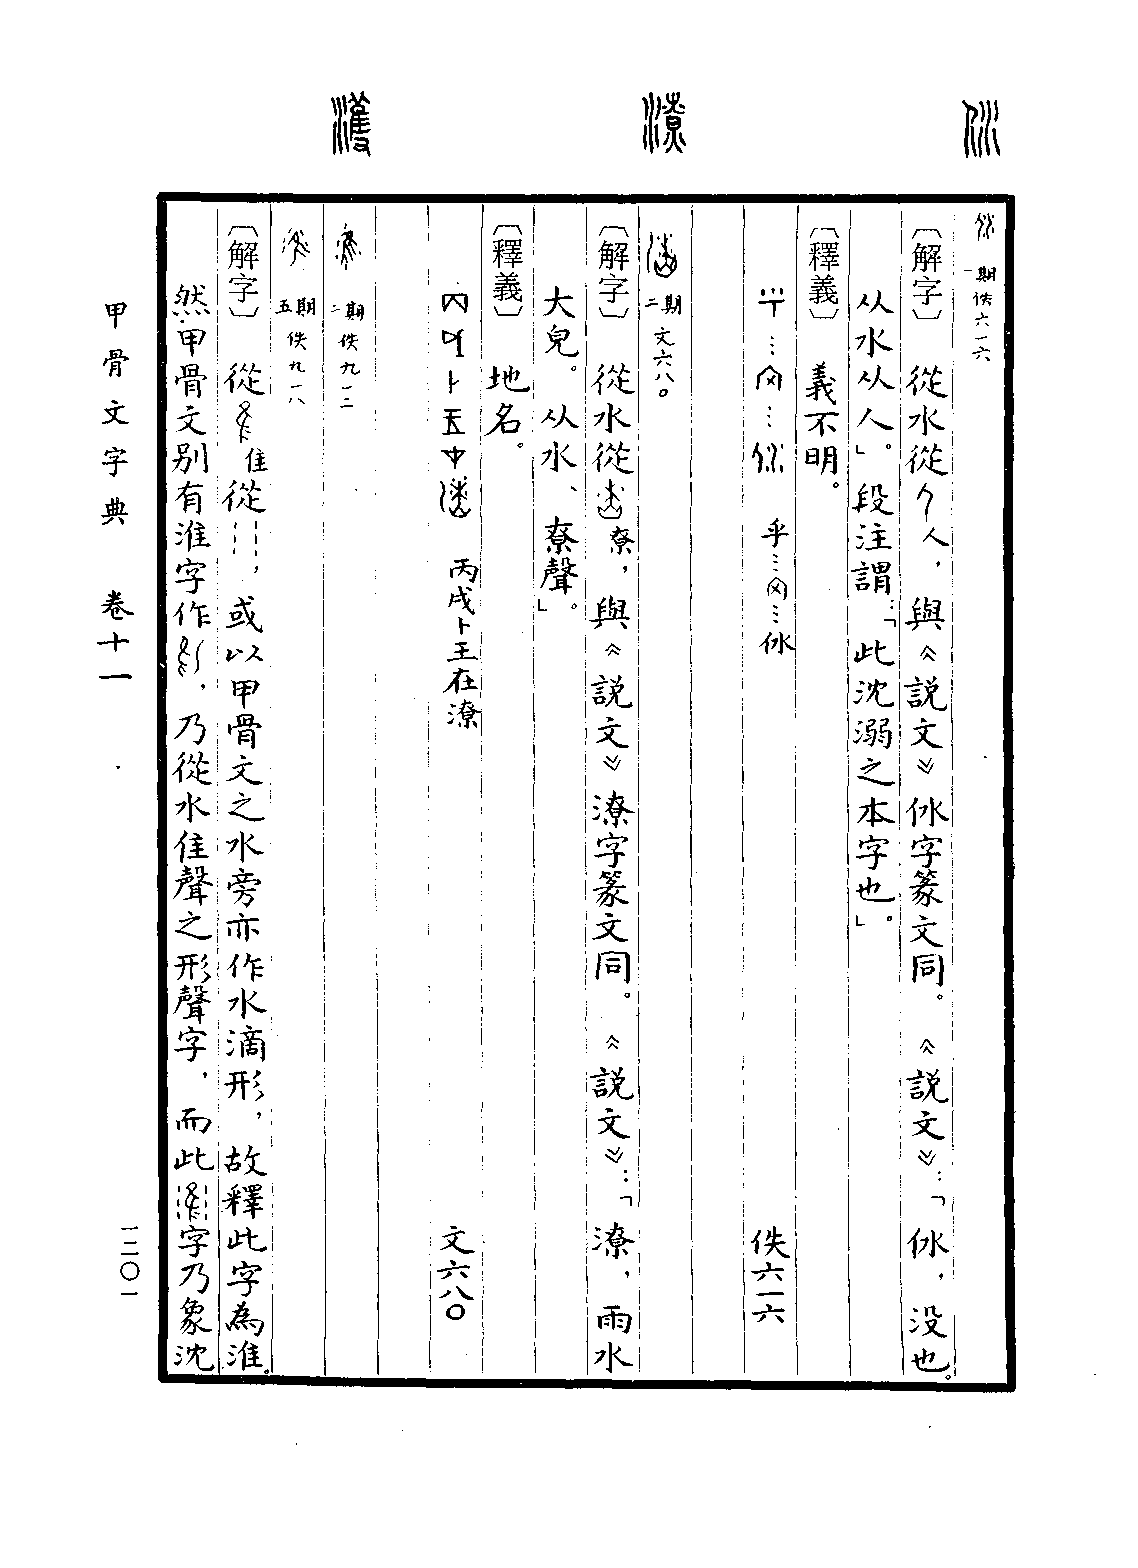 一期 佚六一六
〔解字〕 從水從人，與《説文》㲻字篆文同。《説文》：「㲻，没也。
从水从人」。段注謂：「此沈溺之本字也」。
〔釋義〕 義不明。
乎…⋯㲻 佚六一六
二期 文六八〇
〔解字〕 從水從尞，與《説文》潦字篆文同。《説文》：「潦，雨水
大皃。从水、尞聲」。
〔釋義〕 地名。
丙戌卜王在潦 文六八〇
二期 佚九一二
五期 佚九一八
〔解字〕 從隹從，或以甲骨文之水旁亦作水滴形，故釋此字為淮。
然甲骨文别有淮字作，乃從水隹聲之形聲字，而此字乃象沈
甲骨文字典 卷十一
一二〇一